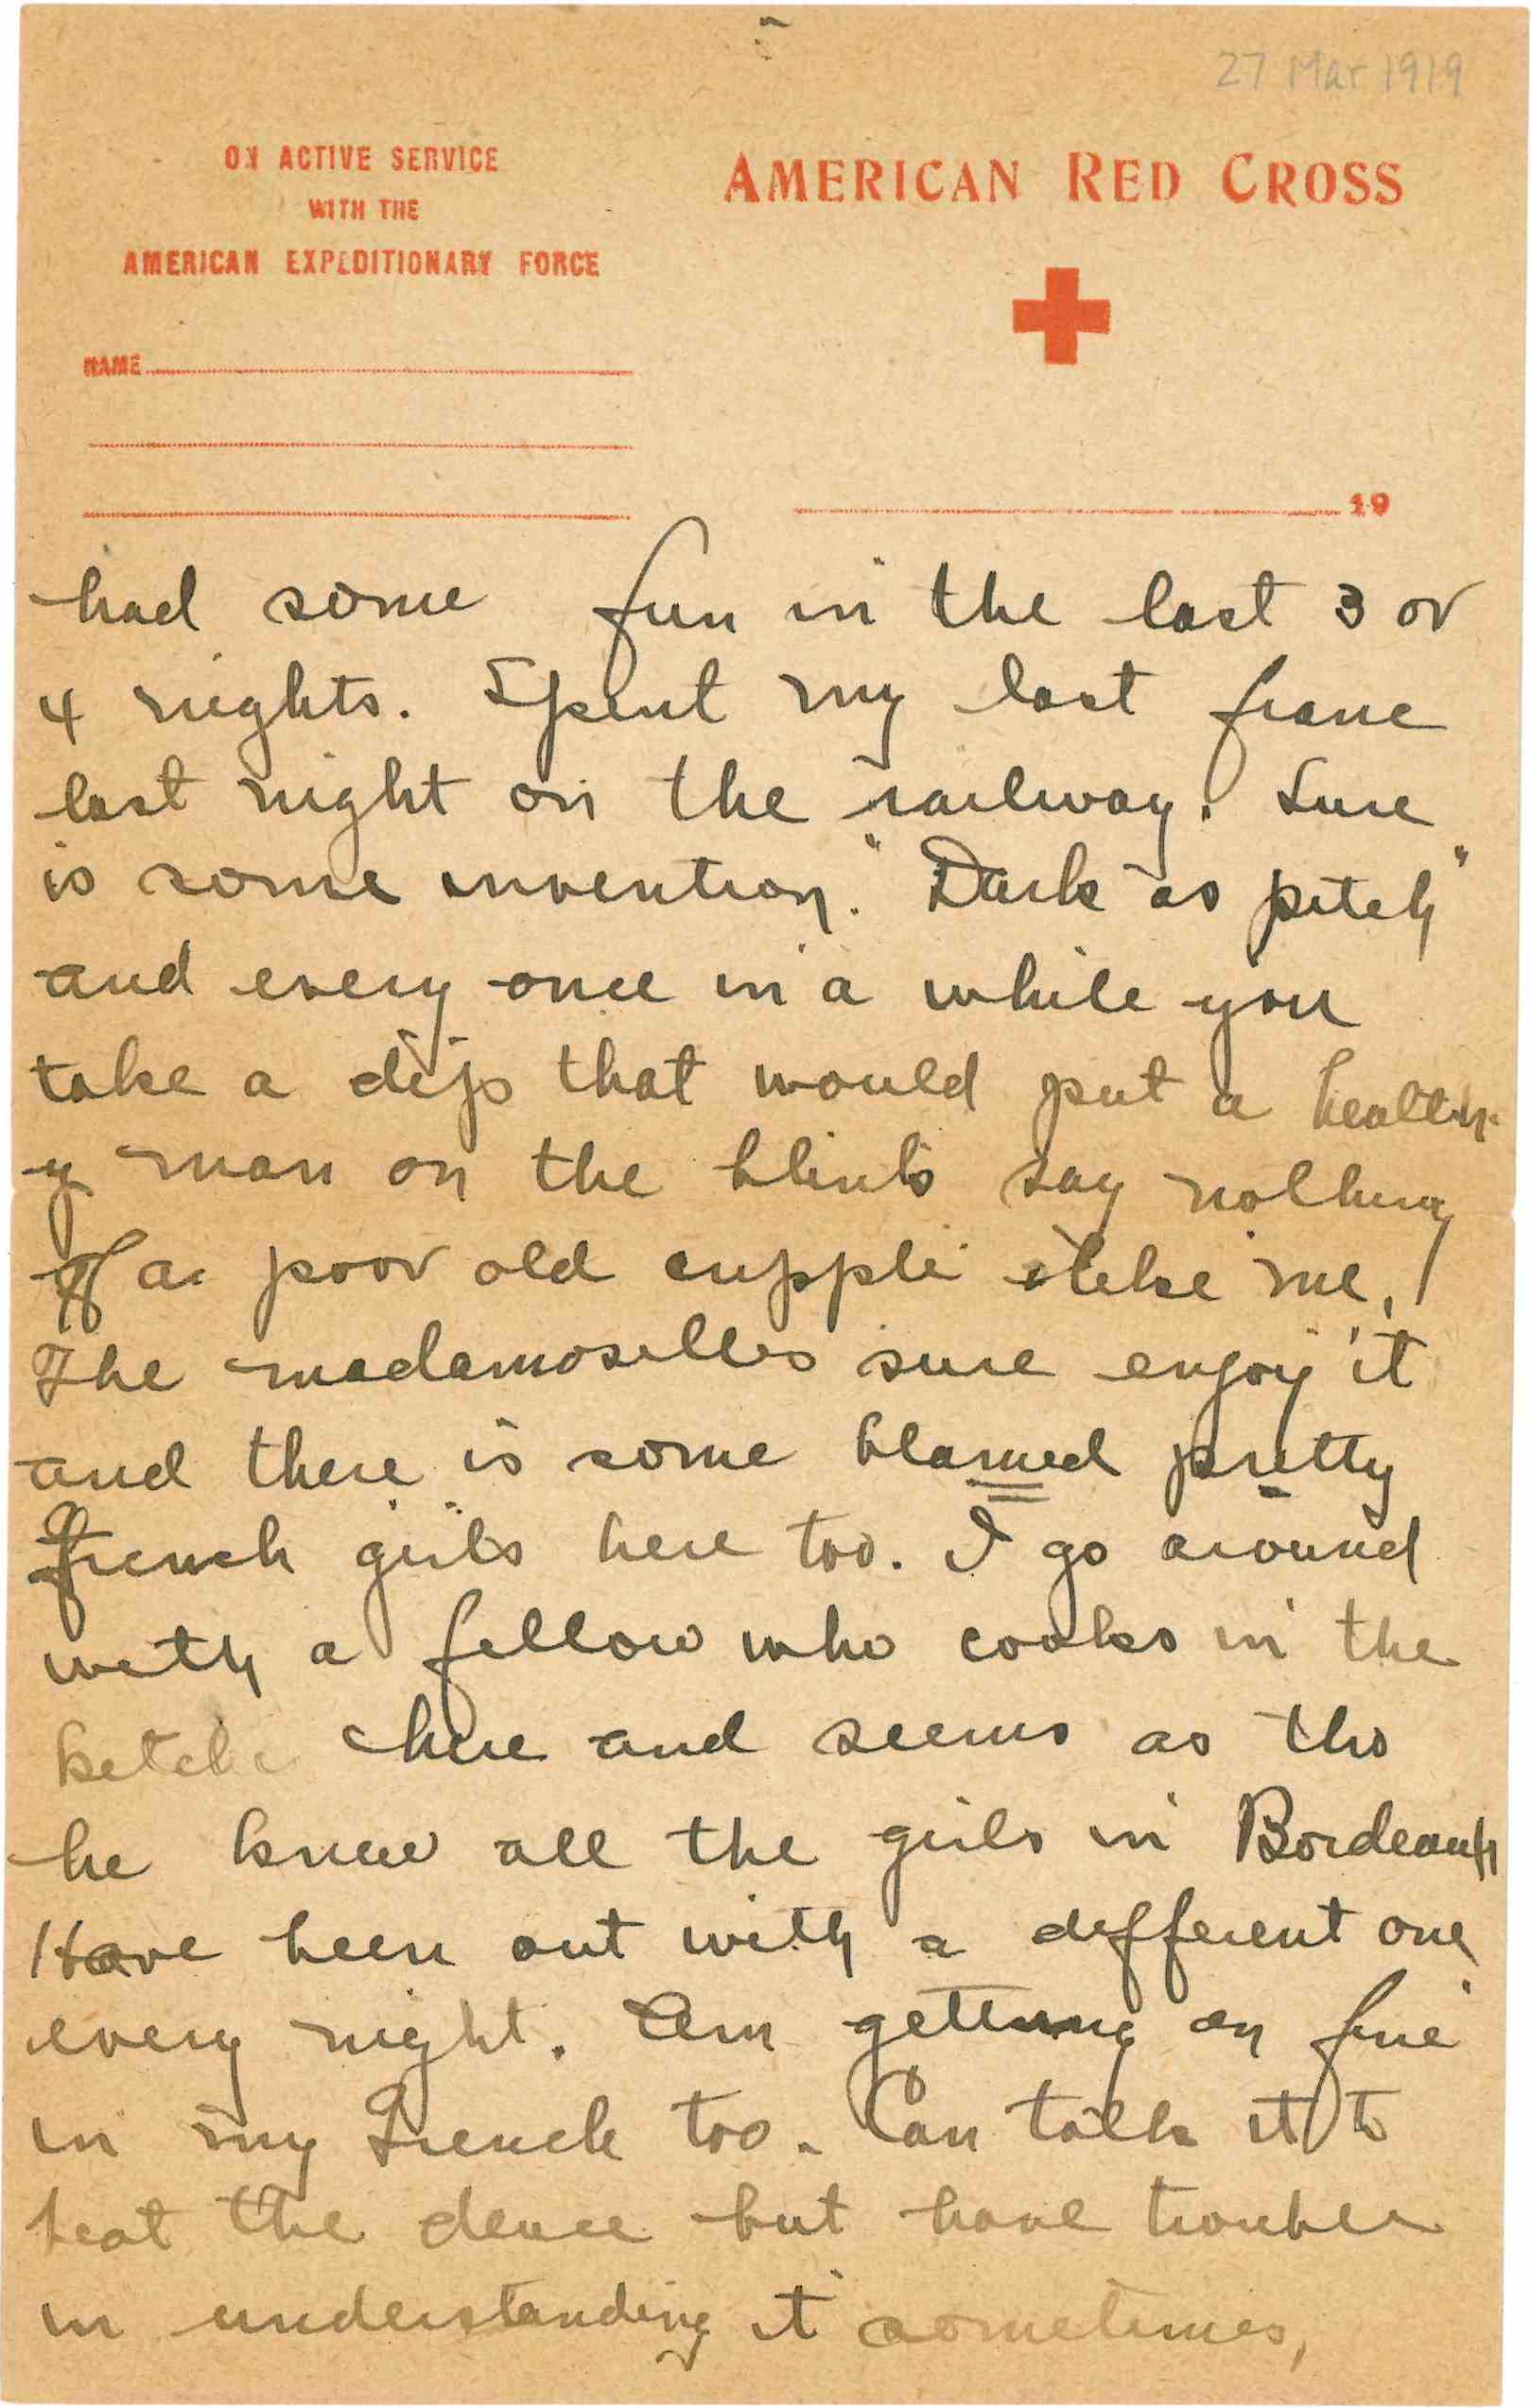 27 Mar 1919
ON ACTIVE SERVICE
WITH THE
AMERICAN EXPEDITIONARY FORCE
AMERICAN RED CROSS
NAME
19
had some fun in the last 3 or
4 nights. Spent my last franc
last night on the railway. Sure
is some invention. "Dark as pitch"
and every once in a while you
take a dip that would put a health-
y man on the blink say nothing
of a poor old cripple like me.
The madamoselles sure enjoy it
and there is some blamed pretty
French girls here too. I go around
with a fellow who cooks in the
here and seems as tho
he knew all the girls in Bordeaux
Have been out with a different one
every night. Am getting on fine
in my French too. Can talk it to
beat the deuce but have trouble
in understanding it sometimes,